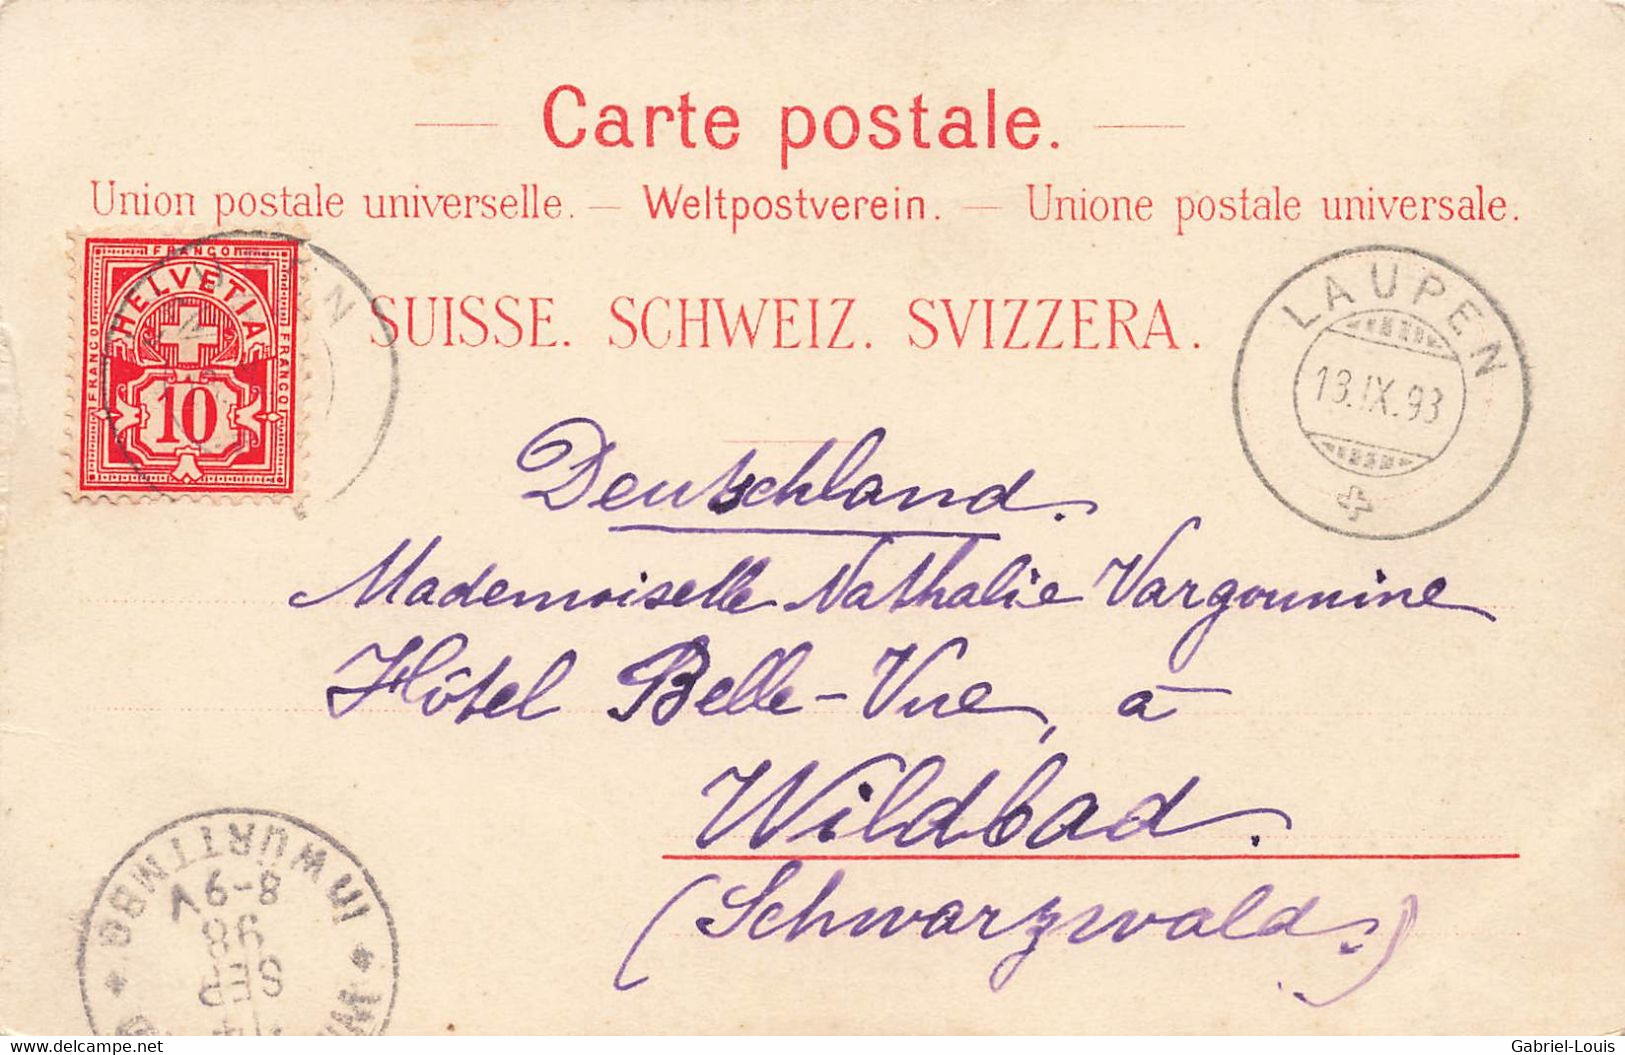 Carte postale.
Union postale universelle. — Weltpostverein. — Unione postale universale.
FRANCO
HELVETIA
FRANCO
FRANCO
10
SUISSE. SCHWEIZ. SVIZZERA.
LAUPEN
13.IX.93
Deutschland.
Mademoiselle Nathalie Vargounine
Hôtel Belle-Vue, à
Wildbad.
(Schwarzwald.)
IN WÜRTTMBG
8-9V
98
SEP
14
delcampe.net
Gabriel-Louis